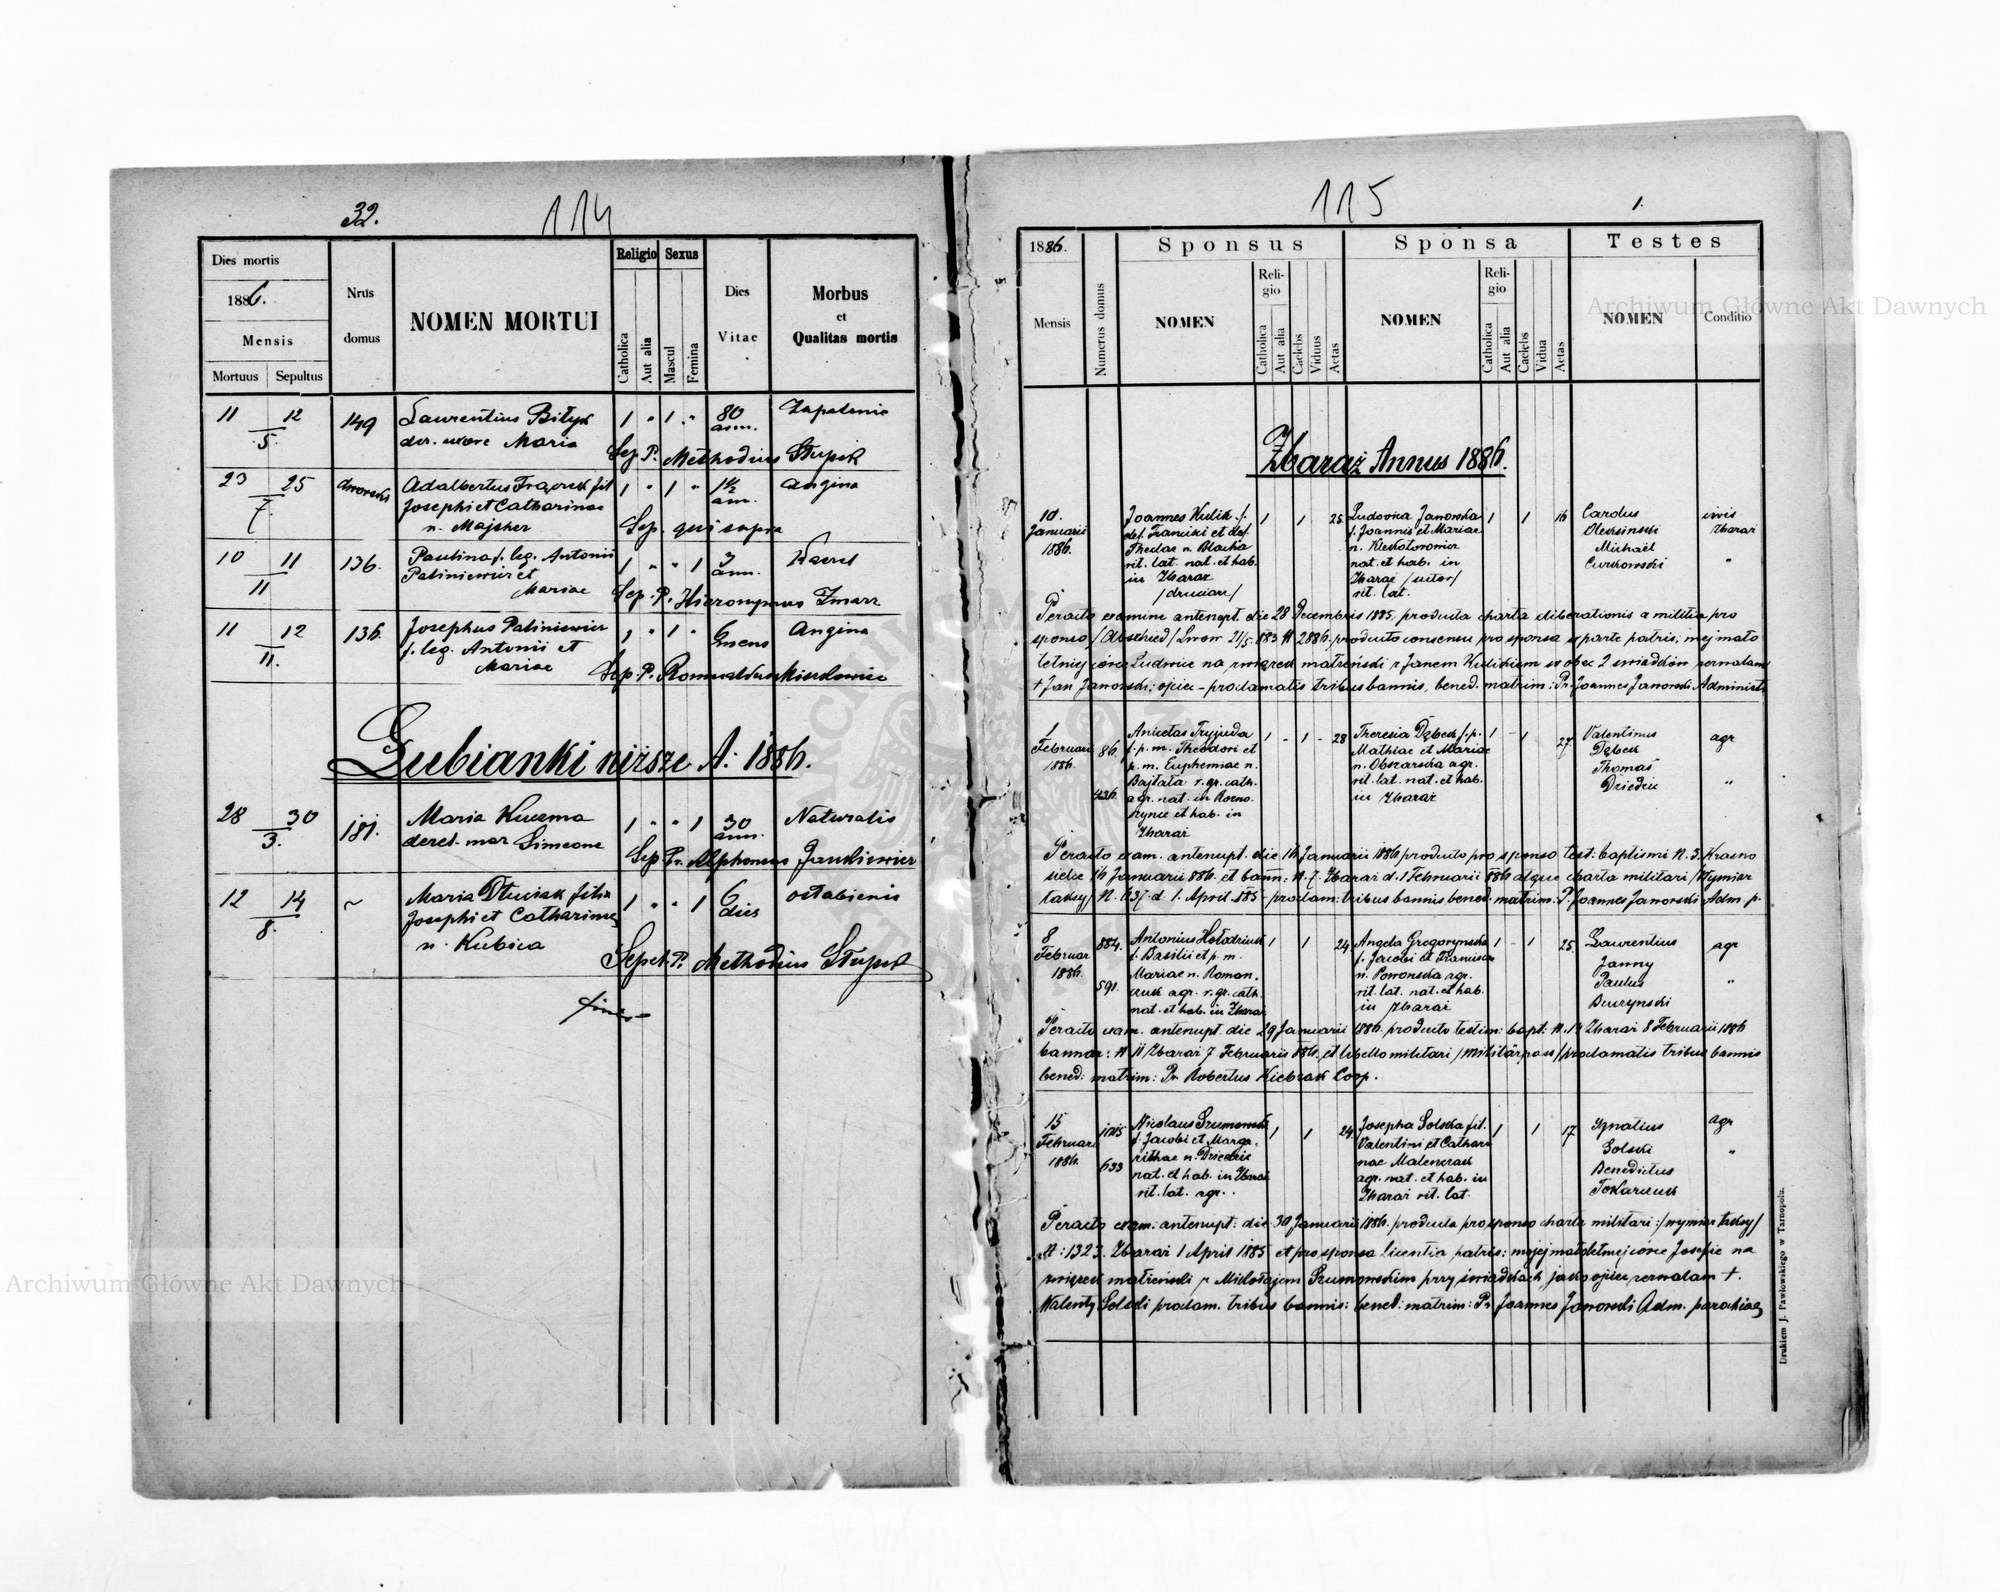 32.
114
Dies mortis
1886.
Mensis
Mortuus
Sepultus
Nrus domus
NOMEN MORTUI
Religio
Catholica
Aut alia
Sexus
Mascul
Femina
Dies Vitae
Morbus
et
Qualitas mortis
11 12 149 Laurentius Bityk 1 " 1 " 80 Zapalenie
5. der. uxore Maria ann.
Sep. P. Methodius Stupik
23 25 dworski Adalbertus fil 1 " 1 " 1½ angina
7 Josephi et Catharinae ann.
n. Majcher Sep. qui supra
10 11 136. Paulina f. leg. Antonii 1 " " 1 3 Kaszel
11 Paliniewicz et ann.
Mariae Sep. P. Hieronymus
11 12 136. Josephus Paliniewicz 1 " 1 " 6 Angina
11. f. leg. Antonii et mens
Mariae Sep. P. Romualdus
Łubianki niższe A: 1886.
28 30 181. Maria Kuzma 1 " " 1 30 Naturalis
3. derel. mar Simeone ann.
Sep. Pr. Alphonsus
12 14 ~ Maria filia 1 " " 1 6
8. Josephi et Catharinae dies
n. Kubica
Sepel. P. Methodius Stupik
finis
115
1.
1886.
Mensis
Numerus domus
Sponsus
NOMEN
Religio
Catholica
Aut alia
Caelebs
Viduus
Aetas
Sponsa
NOMEN
Religio
Catholica
Aut alia
Caelebs
Vidua
Aetas
Testes
NOMEN
Conditio
Zbaraż Annus 1886.
Januarii Joannes Kulik f. 1 1 25 Ludovica Janowska 1 1 16 Carolus civis
1886. def. Francisci et def. f. Joannis et Mariae Oleksinski Zbaraż
Theclae n. Blacha n. Michael
rit. lat. nat. et hab. nat. et hab. in "
in Zbaraż Zbaraż
rit. lat.
Peracto examine antenupt. die 28 Decembris 1885, producta charta liberationis a militia pro
sponso /Abschied/ Lwow 21/5 883 N 2886. producto consensu pro sponsa ex parte patris; mej mało
letniej córce Ludwice na związek małżeński z Janem Kulikiem wobec 2 świadków zezwalam
+ Jan Janowski; ojciec - proclamatis tribus bannis, bened. matrim: Pr. Joannes Janowski Administr
1 Februari 1886. 86. Anicetas 1 - 1 - 28 Theresia Dębek f. p. 1 1 27 Valentinus agr
f. p. m. Theodori et Mathiae et Mariae Dębek
p. m. Euphemiae n. n. Obszarska agr. Thomas
Bajtała r. gr. cath. rit. lat. nat. et hab. Driedzic "
agr. nat. in in Zbaraż
et hab. in
Zbaraż
Peracto exam. antenupt. die 16 Januarii 1886 producto pro sponso test: baptismi N. 3. Krasno
sielce 16 Januarii 886. et bann: N. 7. Zbaraż d. 1 Februarii 886 atque charta militari /Wymiar
taksy/ N. 637 d. 1. April. 885 - proclam: tribus bannis bened. matrim: P. Joannes Janowski Adm. p.
8 Februar 1886. 884. 591. Antonius 1 1 24 Angela 1 - 1 25 Laurentius agr
f. Basilii et p. m. f. Jacobi et Francisca Janny
Mariae n. Roman. n. agr. Paulus "
czuk agr. r. gr. cath. rit. lat. nat. et hab.
nat. et hab. in Zbaraż in Zbaraż
Peracto exam. antenupt. die 29 Januarii 1886. producto testim: bapt: N. 14 Zbaraż 8 Februarii 1886
bannar: N 11 Zbaraż 7 Februarii 886. et libello militari /Militärpass/ proclamatis tribus bannis
bened: matrim: Pr. Robertus Coop.
15 Februari 1886. 633 Nicolaus Szumowski 1 1 24 Josepha Solska fil. 1 1 17 Ignatius agr
f. Jacobi et Marga- Valentini et Cathari Solski
rithae n. Driedzic nae "
nat. et hab. in Zbaraż agr. nat. et hab. in Benedictus
rit. lat. agr. Zbaraż rit. lat. Tokarczuk
Peracto exam: antenupt: die 30 Januarii 1886. producta pro sponso charta militari: /wymiar taksy/
N: 1323. Zbaraż 1 April 1885 et pro sponsa licentia patris: mojej małoletniej córce Josefie na
związek małżeński z Mikołajem Szumowskim przy świadkach jako ojciec zezwalam +.
Walenty Solski proclam. tribus bannis: bened: matrim: Pr Joannes Janowski Adm. parochiae
Drukiem J. Pawłowskiego w Tarnopolu.
Archiwum Główne Akt Dawnych
Archiwum Główne Akt Dawnych